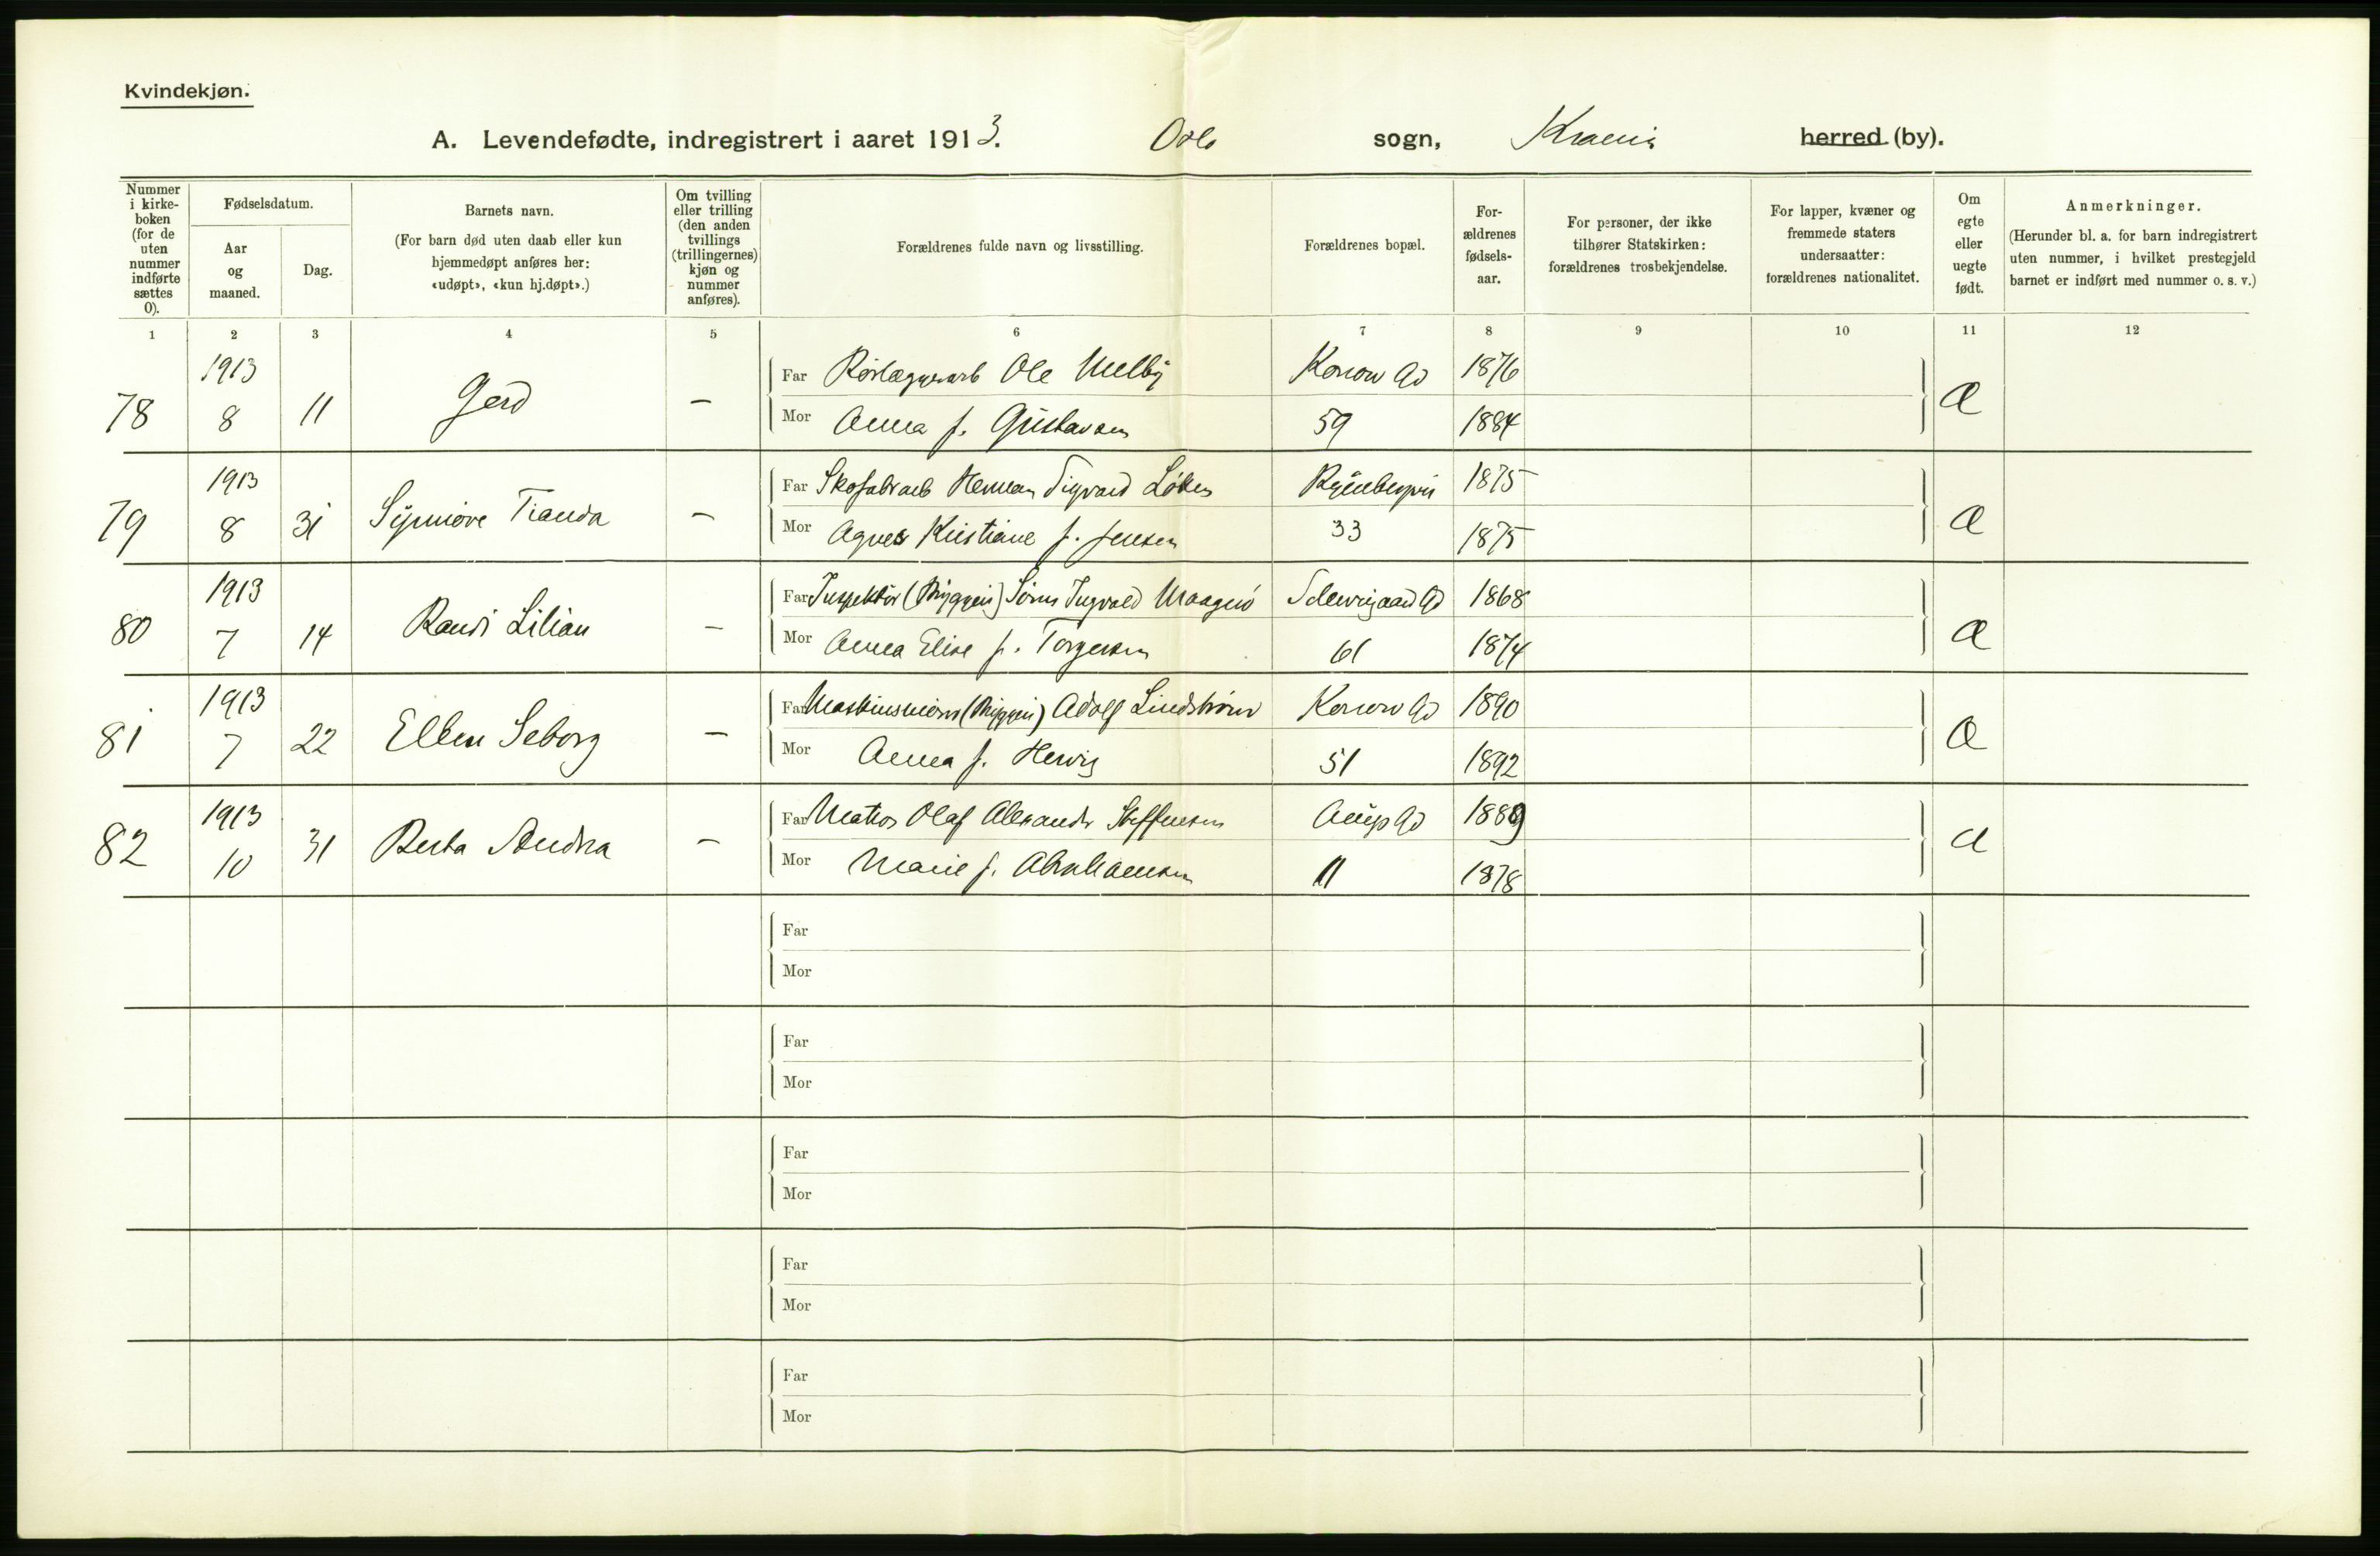 Kvindekjøn.
A. Levendefødte, indregistrert i aaret 1913. Oslo sogn, Krania herred (by).
Nummer i kirke-boken (for de uten nummer indførte sættes 0).
Fødselsdatum.
Aar og maaned.
Dag.
Barnets navn.
(For barn død uten daab eller kun hjemmedøpt anføres her: «udøpt», «kun hj.døpt».)
Om tvilling eller trilling (den anden tvillings (trillingernes) kjøn og nummer anføres).
Forældrenes fulde navn og livsstilling.
Forældrenes bopæl.
For-ældrenes fødsels-aar.
For personer, der ikke tilhører Statskirken: forældrenes trosbekjendelse.
For lapper, kvæner og fremmede staters undersaatter: forældrenes nationalitet.
Om egte eller uegte født.
Anmerkninger.
(Herunder bl. a. for barn indregistrert uten nummer, i hvilket prestegjeld barnet er indført med nummer o. s. v.)
1 2 3 4 5 6 7 8 9 10 11 12
1913 Far Rørlæggerarb Ole Melby Konow Gd 1876
78 8 11 Gerd – Æ
Mor Anna f. Gustavsen 59 1884
1913 Far Skofabrarb Herman Sigvard Løken 1875
79 8 31 Synnøve – Æ
Mor Agnes Kristiane f. Jensen 33 1875
1913 Far Inspektør (Bryggeri) Ingvald Schweigaard Gd 1868
80 7 14 Randi Lilian – Æ
Mor Anna Elise f. Torgersen 61 1874
1913 Far (Bryggeri) Adolf Lindstrøm Konow Gd 1890
81 7 22 Ellen Seborg – Æ
Mor Anna f. Hervig 51 1892
1913 Far Matros Olaf Alexander Steffensen Gd 1889
82 10 31 Berta Andrea – Æ
Mor Marie f. Abrahamsen 11 1878
Far
Mor
Far
Mor
Far
Mor
Far
Mor
Far
Mor